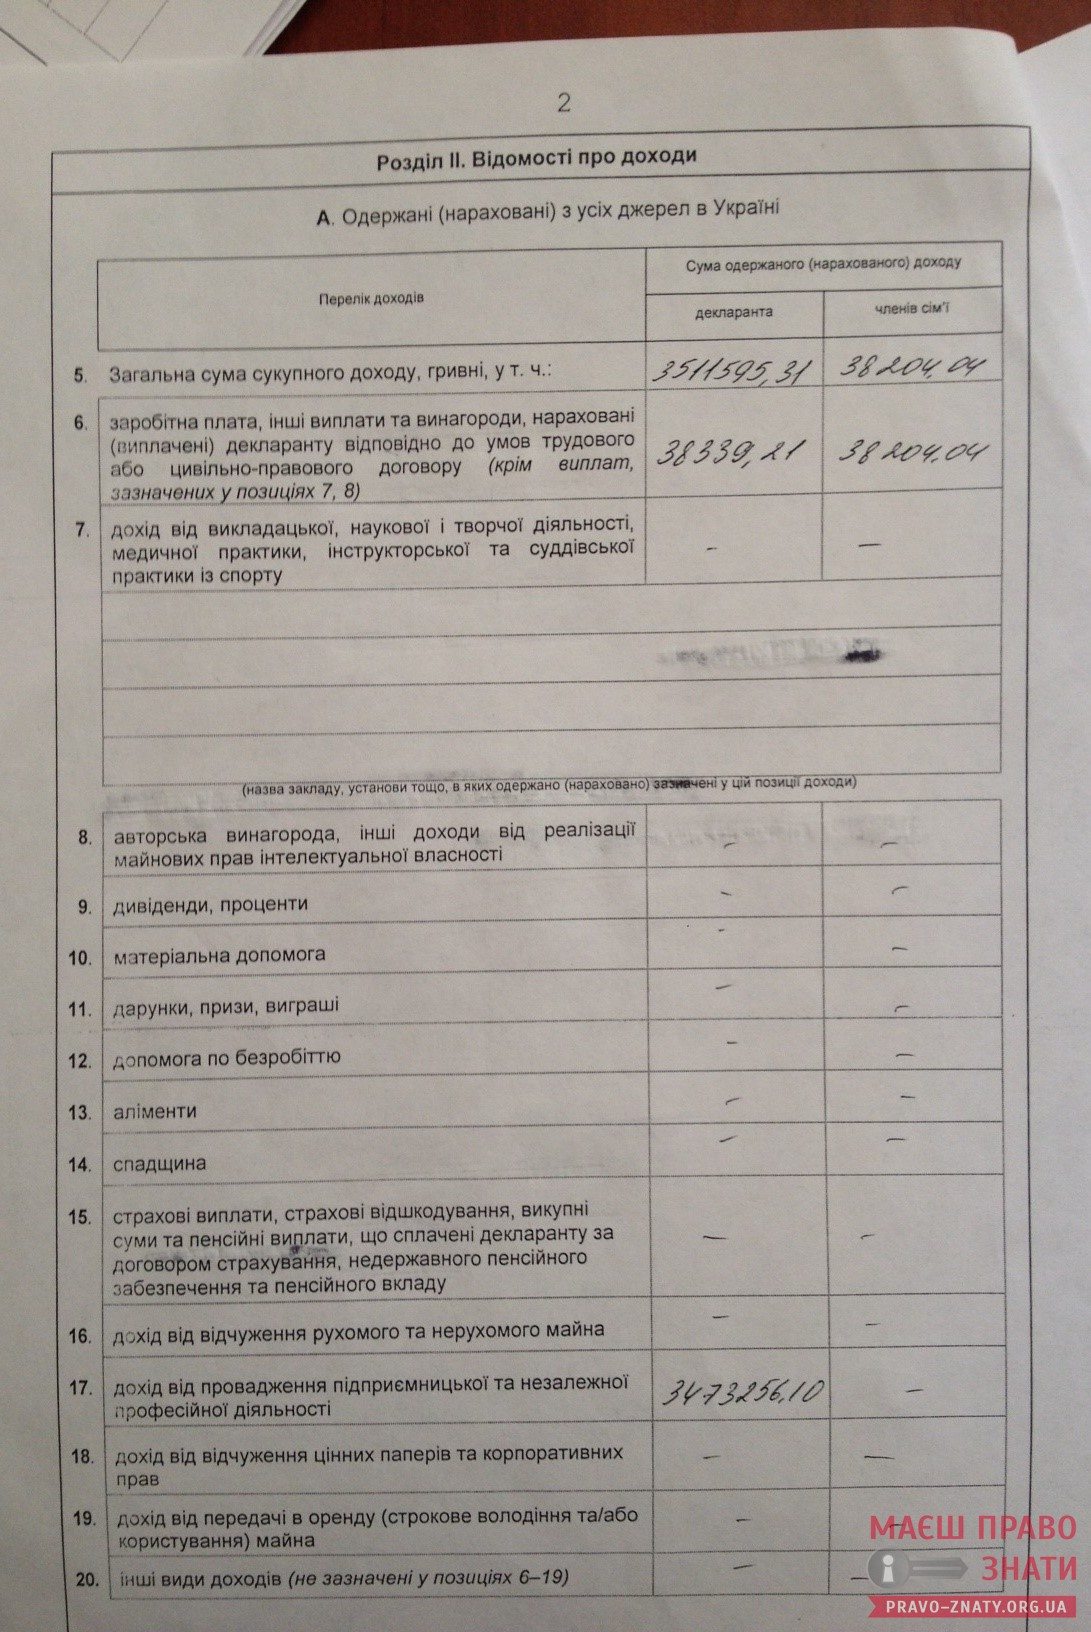 2
Розділ II. Відомості про доходи
А. Одержані (нараховані) з усіх джерел в Україні
Перелік доходів
Сума одержаного (нарахованого) доходу
декларанта
членів сім'ї
5. Загальна сума сукупного доходу, гривні, у т. ч.: 3511595,31 38204,04
6. заробітна плата, інші виплати та винагороди, нараховані
(виплачені) декларанту відповідно до умов трудового
або цивільно-правового договору (крім виплат, 38339,21 38204,04
зазначених у позиціях 7, 8)
7. дохід від викладацької, наукової і творчої діяльності,
медичної практики, інструкторської та суддівської – –
практики із спорту
(назва закладу, установи тощо, в яких одержано (нараховано) зазначені у цій позиції доходи)
8. авторська винагорода, інші доходи від реалізації
майнових прав інтелектуальної власності – –
9. дивіденди, проценти – –
10. матеріальна допомога – –
11. дарунки, призи, виграші – –
12. допомога по безробіттю – –
13. аліменти – –
14. спадщина – –
15. страхові виплати, страхові відшкодування, викупні
суми та пенсійні виплати, що сплачені декларанту за – –
договором страхування, недержавного пенсійного
забезпечення та пенсійного вкладу
16. дохід від відчуження рухомого та нерухомого майна – –
17. дохід від провадження підприємницької та незалежної 3473256,10 –
професійної діяльності
18. дохід від відчуження цінних паперів та корпоративних – –
прав
19. дохід від передачі в оренду (строкове володіння та/або – –
користування) майна
20. інші види доходів (не зазначені у позиціях 6–19) – –
МАЄШ ПРАВО
ЗНАТИ
PRAVO-ZNATY.ORG.UA